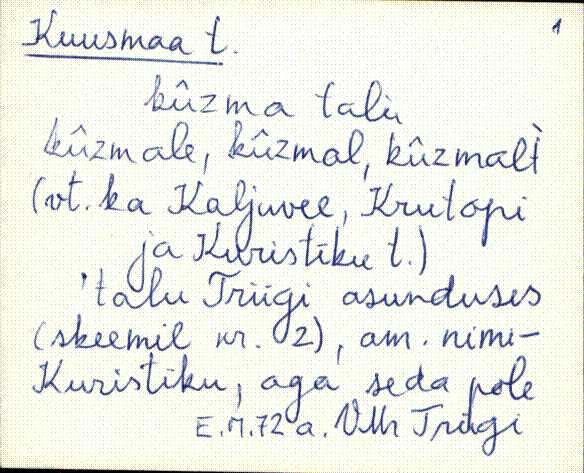 1
Kuusmaa t.
kûzma talu
kûzmale, kûzmal, kûzmalt̀
(vt. ka Kaljuvee, Krutopi
ja Kuristiku t.)
'talu Triigi asunduses
(skeemil nr. 2), am. nimi-
Kuristiku, aga seda pole
E.M.72 a. VMr Triigi